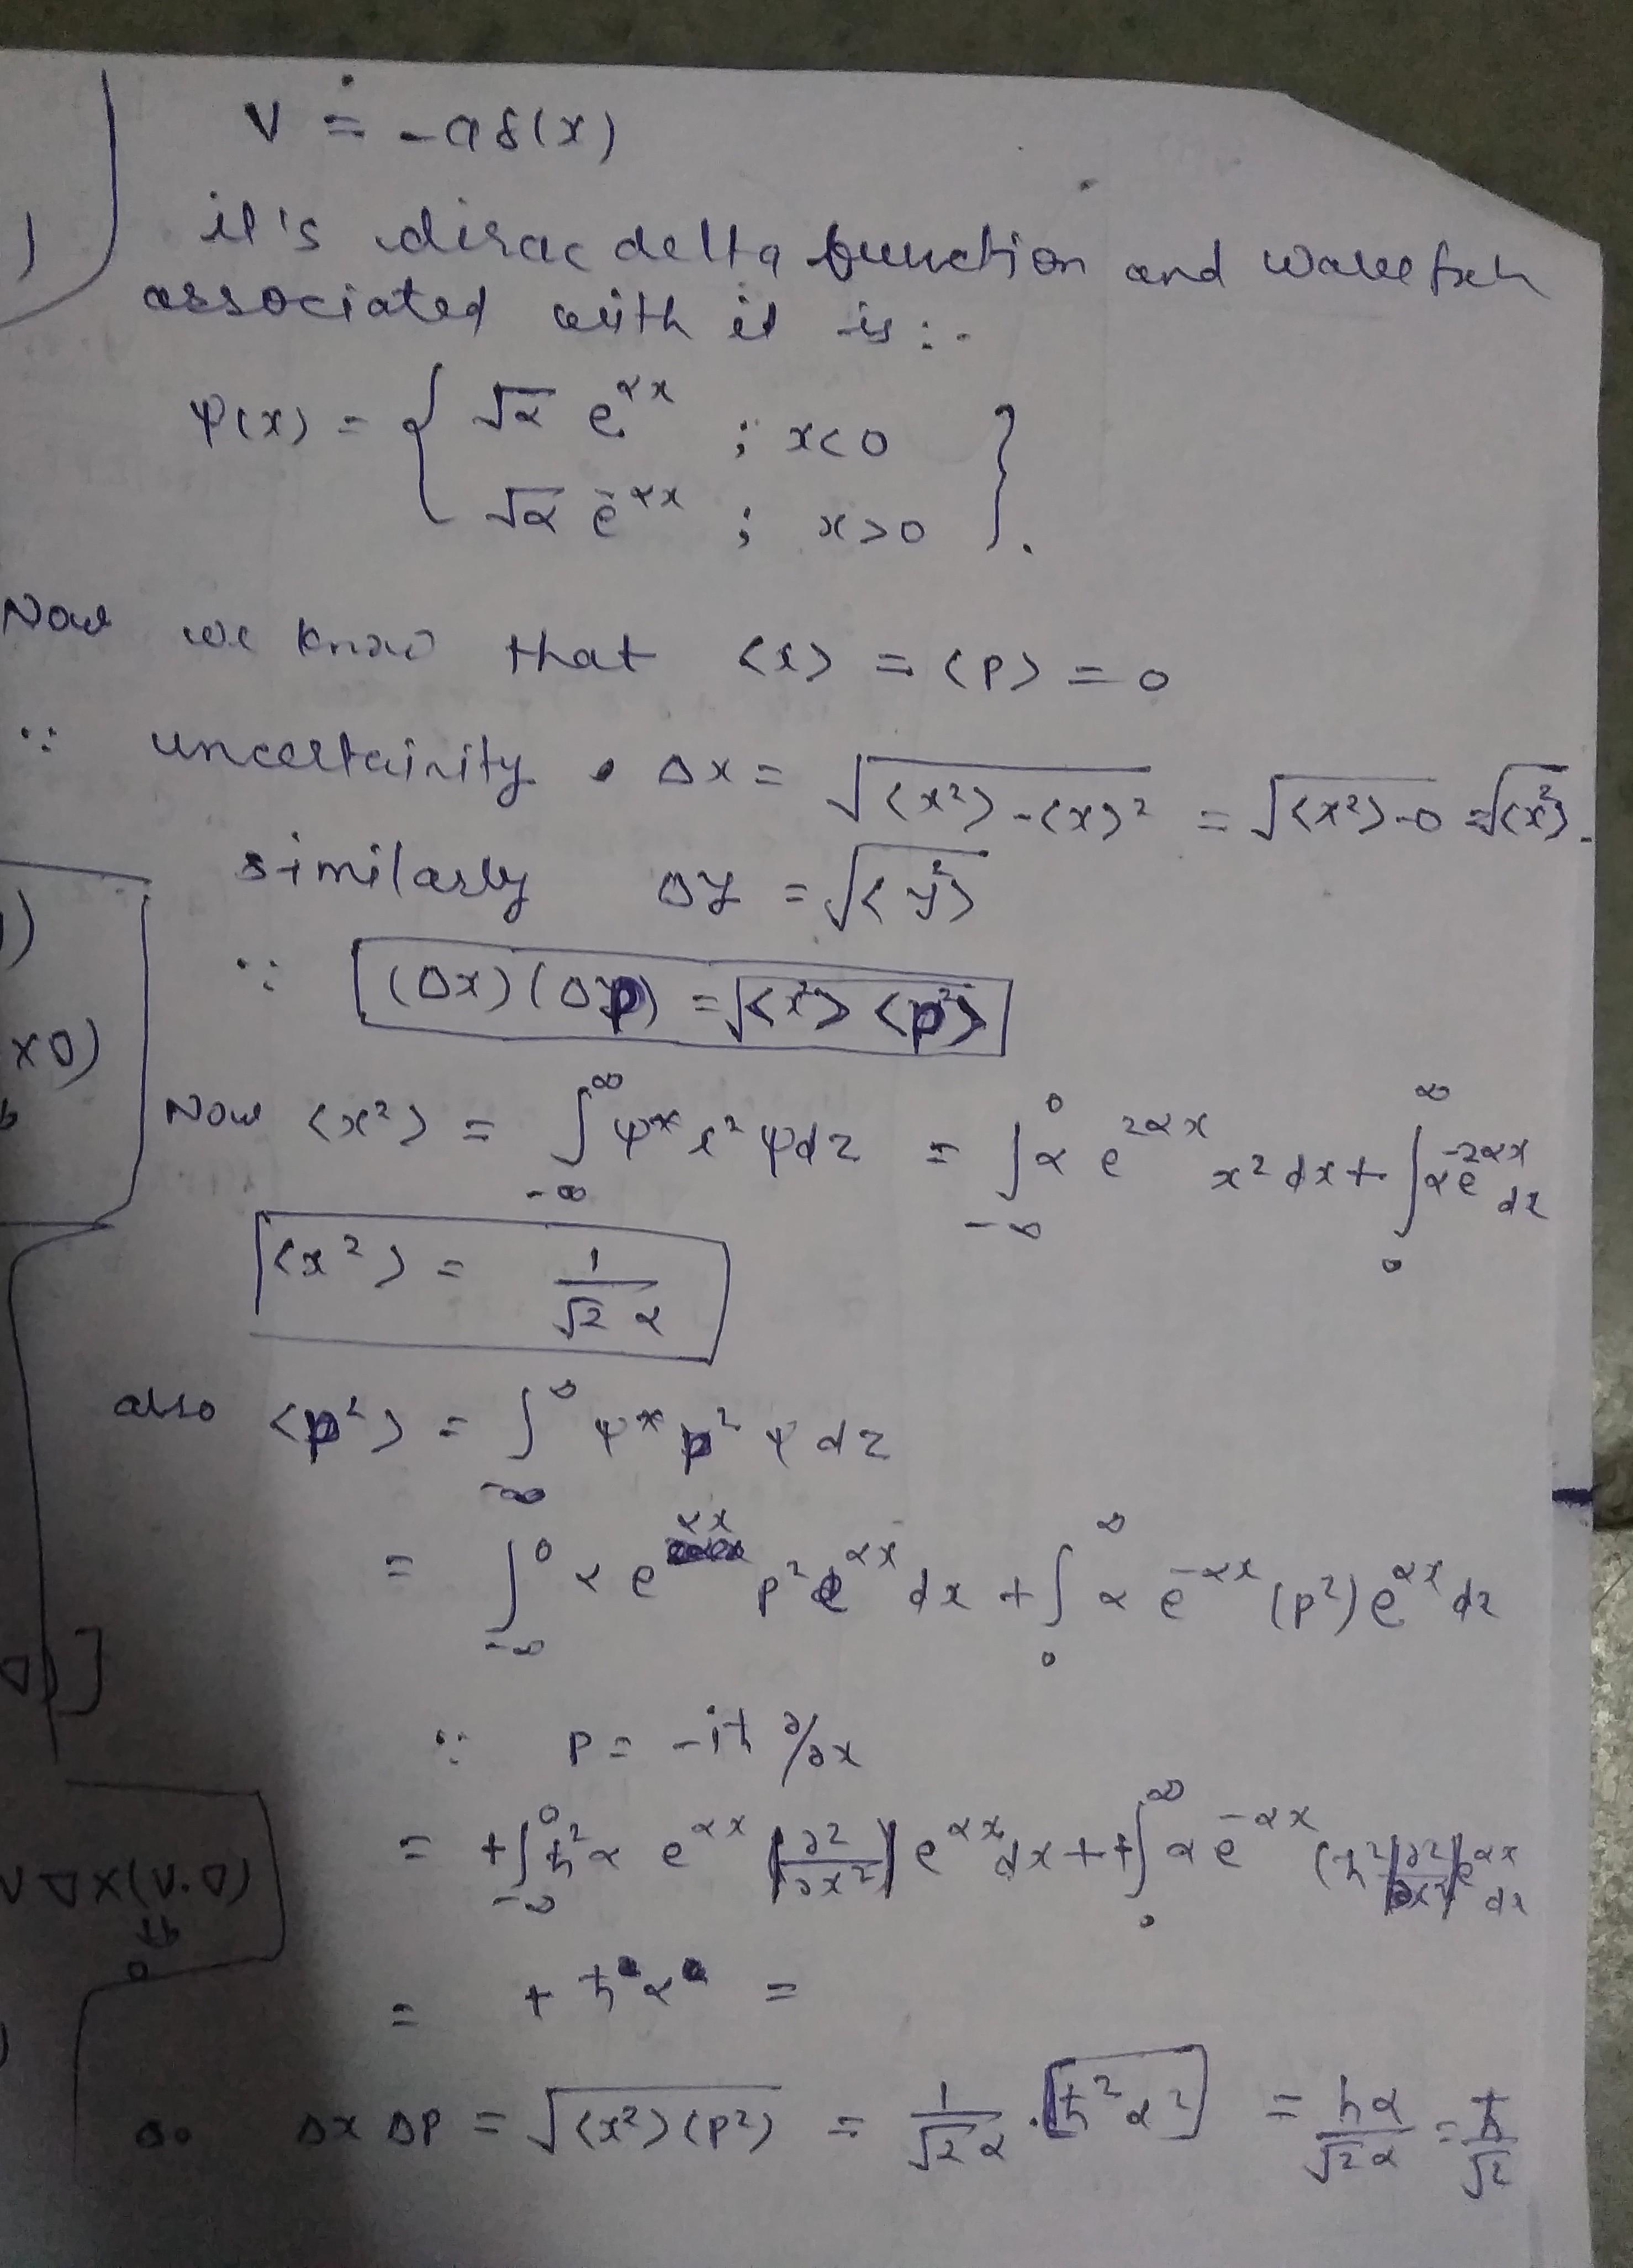 V = -aδ(x)
)
it's dirac delta function and wave fxn
associated with it is :-
ψ(x) = { √α e^{αx} ; x<0
√α e^{-αx} ; x>0 }.
Now we know that <x> = <p> = 0
∵ uncertainity Δx = √(<x²> - <x>²) = √(<x²> - 0) = √<x²>.
similarly Δy = √<y²>
∵ (Δx)(Δp) = √<x²><p²>
)
x0)
Now <x²> = ∫_{-∞}^{∞} ψ* x² ψ dx = ∫_{-∞}^{0} α e^{2αx} x² dx + ∫_{0}^{∞} α e^{-2αx} dx
<x²> = 1/(√2 α)
also <p²> = ∫_{-∞}^{∞} ψ* p² ψ dx
= ∫_{-∞}^{0} α e^{αx} p² e^{αx} dx + ∫_{0}^{∞} α e^{-αx} (p²) e^{αx} dx
]
∵ p = -iħ ∂/∂x
= + ∫_{-∞}^{0} ħ² α e^{αx} |∂²/∂x²| e^{αx} dx + + ∫_{0}^{∞} α e^{-αx} (ħ² |∂²/∂x²| e^{αx} dx
∇×(V.∇)
0
= + ħ α =
so Δx Δp = √(<x²><p²>) = 1/(√2 α) . [ħ² α²] = ħα/(√2 α) = ħ/√2